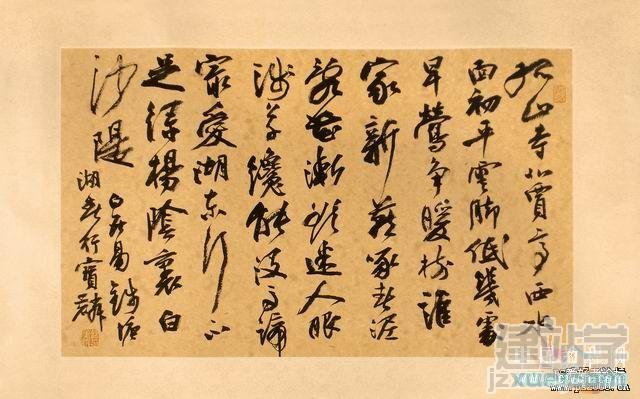 孤山寺北賈亭西水
面初平雲脚低幾處
早鶯争暖樹誰
家新燕啄春泥
亂花漸欲迷人眼
淺草纔能没馬蹄
最愛湖東行不
足綠楊陰裏白
沙隄
白居易錢塘
湖春行寶麟
建站学
jzxue